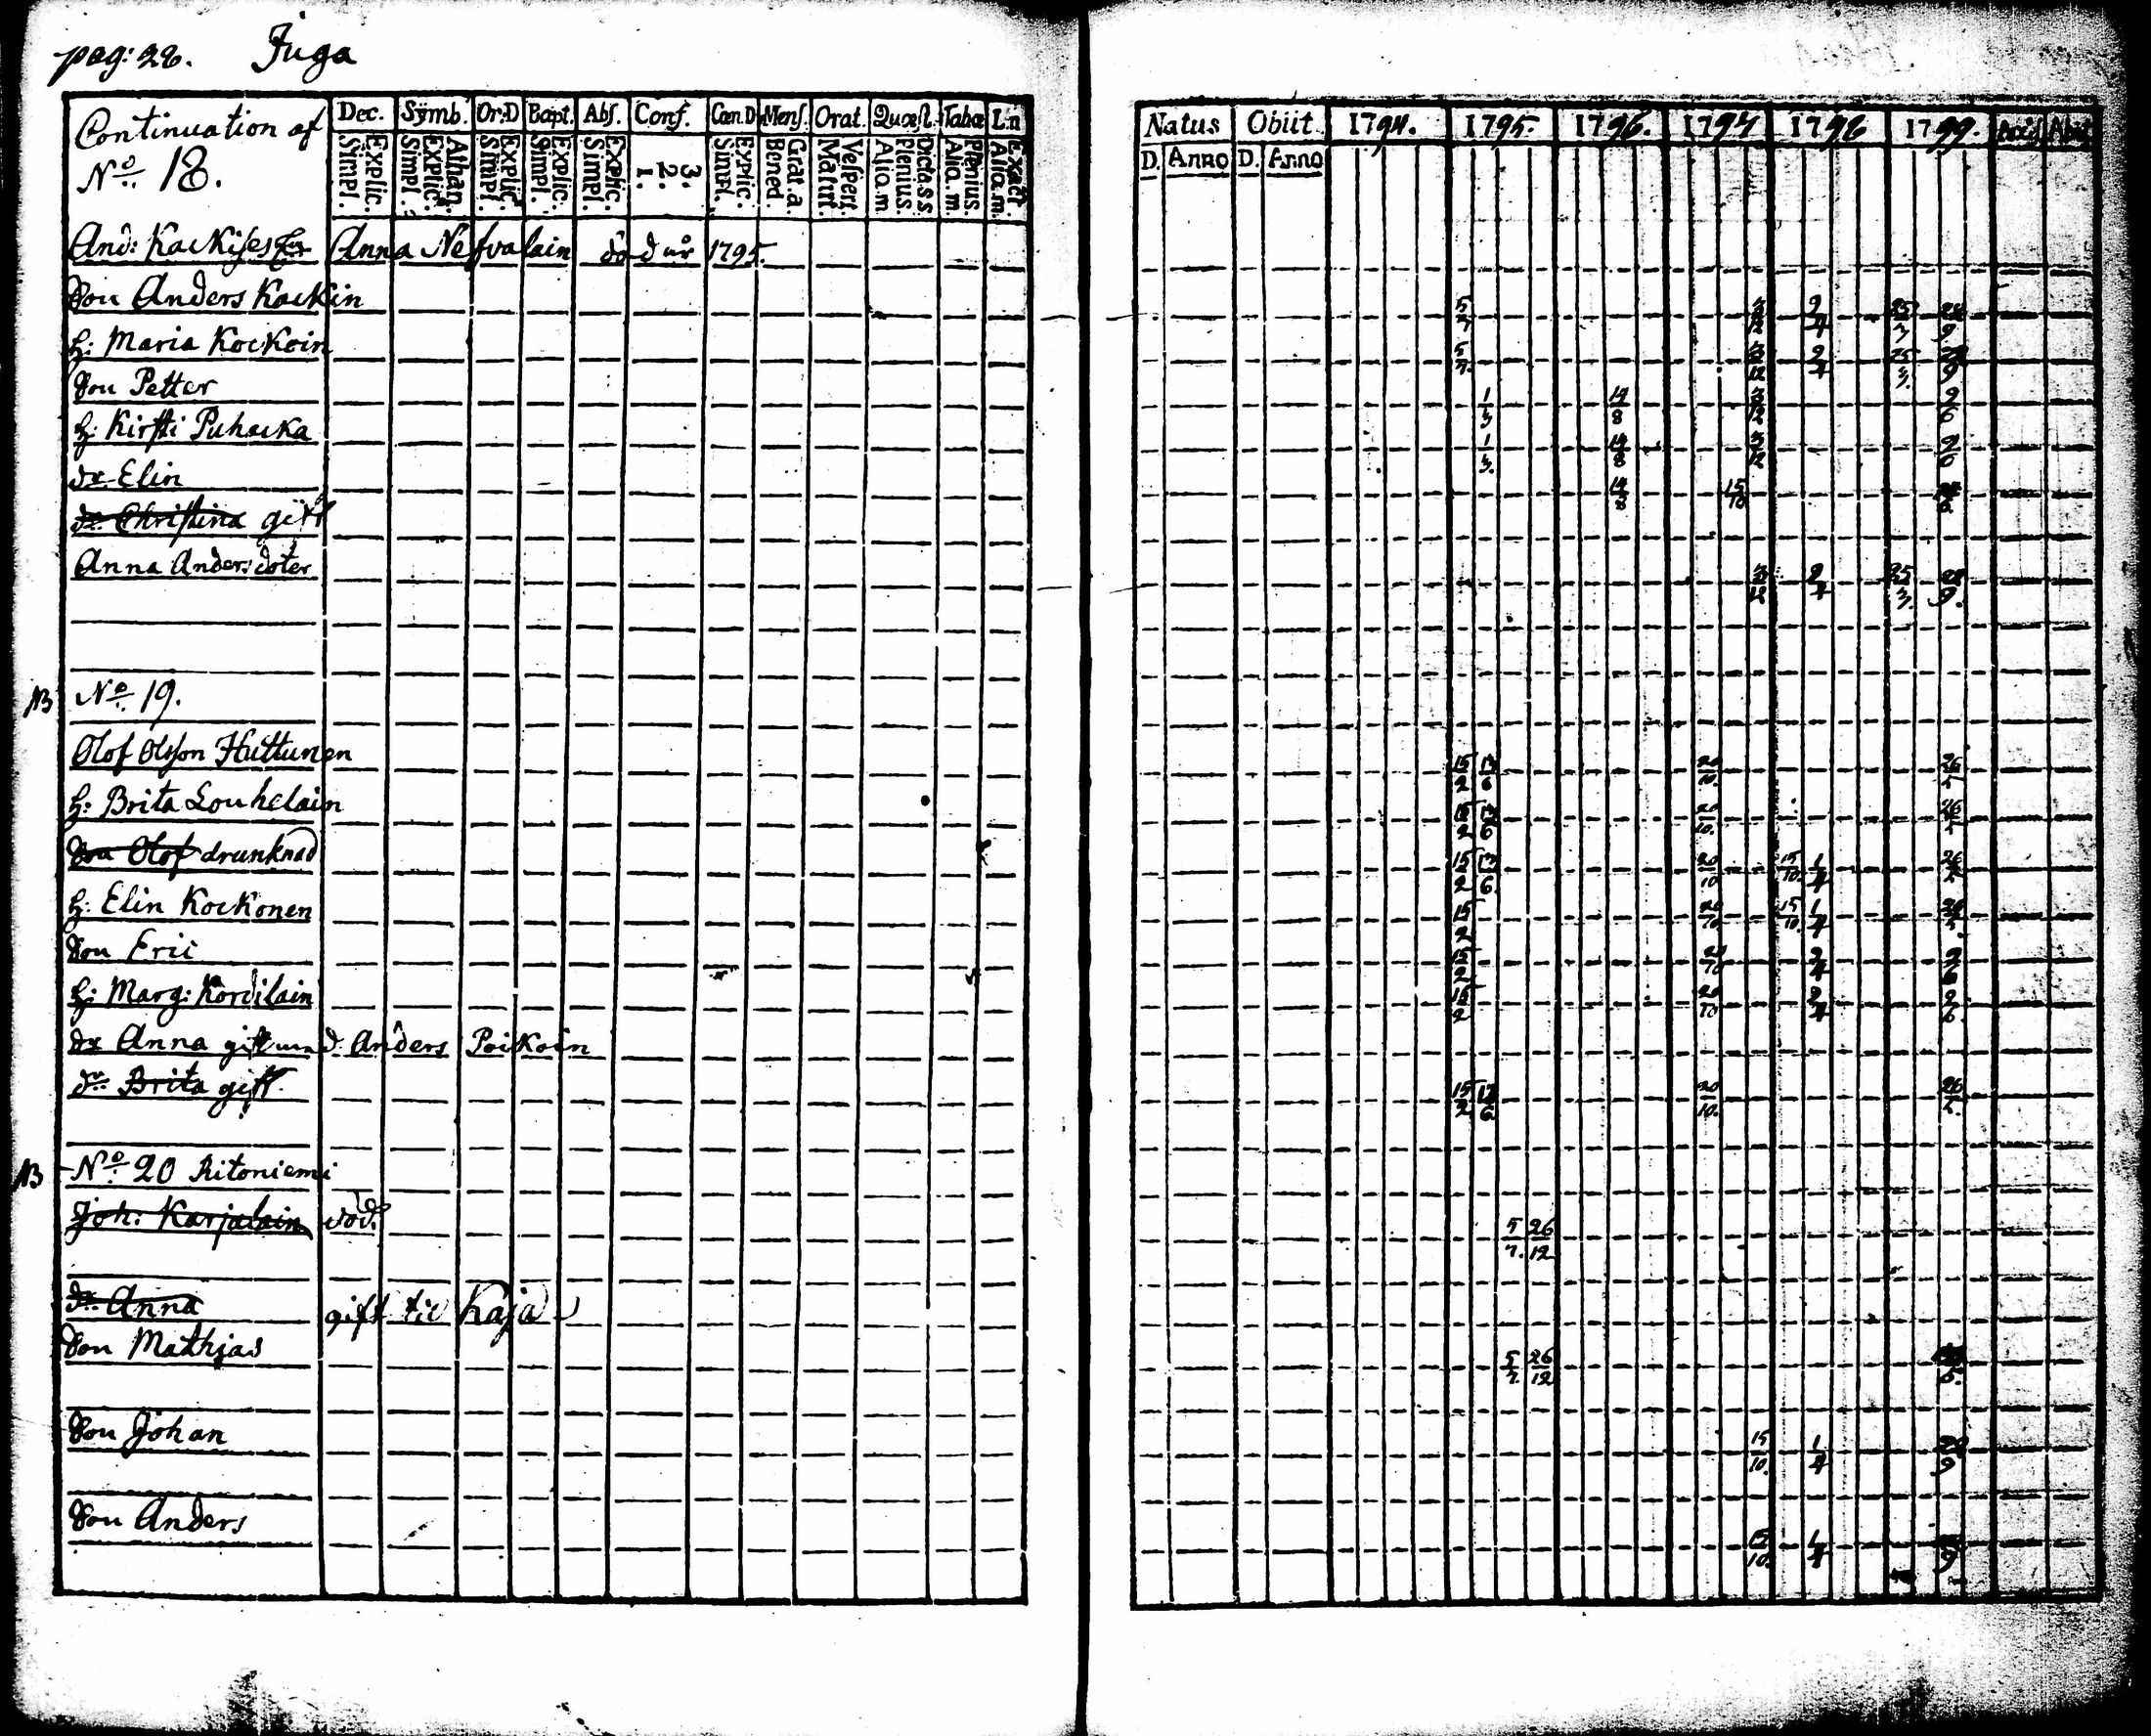 pag: 28. Juga
Continuation af
No. 18.
Dec. Symb. Or:D Bapt. Abs. Conf. Cœn.D Mens. Orat. Quæst. Tabœ
Explic. Simpl.
Athan. Explic. Simpl.
Explic. Simpl.
Explic. Simpl.
Explic. Simpl.
3. 2. 1.
Explic. Simpl.
Grat. a. Bened.
Vespert. Matut.
Dicta. s.s Plenius. Aliq. m
Plenius. Aliq. m.
Exact. Aliq. m.
And: Kackises Anna Nefvalain död år 1795.
Son Anders Kackin
h: Maria Kockoin
Son Petter
h: Kirsti Puhacka
dr. Elin
dr. Christina gift
Anna Andersdoter
NB No. 19.
Olof Olsson Huttunen
h: Brita Louhelain
Son Olof drunknad
h: Elin Kockonen
Son Eric
h: Marg: Kordilain
dr Anna gift med Anders Poikoin
dr. Brita gift.
NB No. 20 Ritoniemi
Joh: Karjalain död.
dr. Anna gift til Kaja
Son Mathjas
Son Johan
Son Anders
Natus Obiit 1794. 1795. 1796. 1797 1798 1799.
D. Anno D. Anno
5/7 9/4 25/3
5/7 9/4 25/3
1/3 14/8 9/6
1/3 14/8 9/6
14/8 15/10
25/3
15/2 13/6 20/10 26/5
15/2 13/6 20/10. 26/5
15/2 13/6 20/10 15/10. 1/4 26/5
15/2 20/10 15/10. 1/4 26/5
15/2 20/10 2/4 2/6
15/2 20/10 2/4 2/6
15/2 13/6 20/10. 26/5
5/7. 26/12
5/7. 26/12
15/10. 1/4
15/10. 1/4